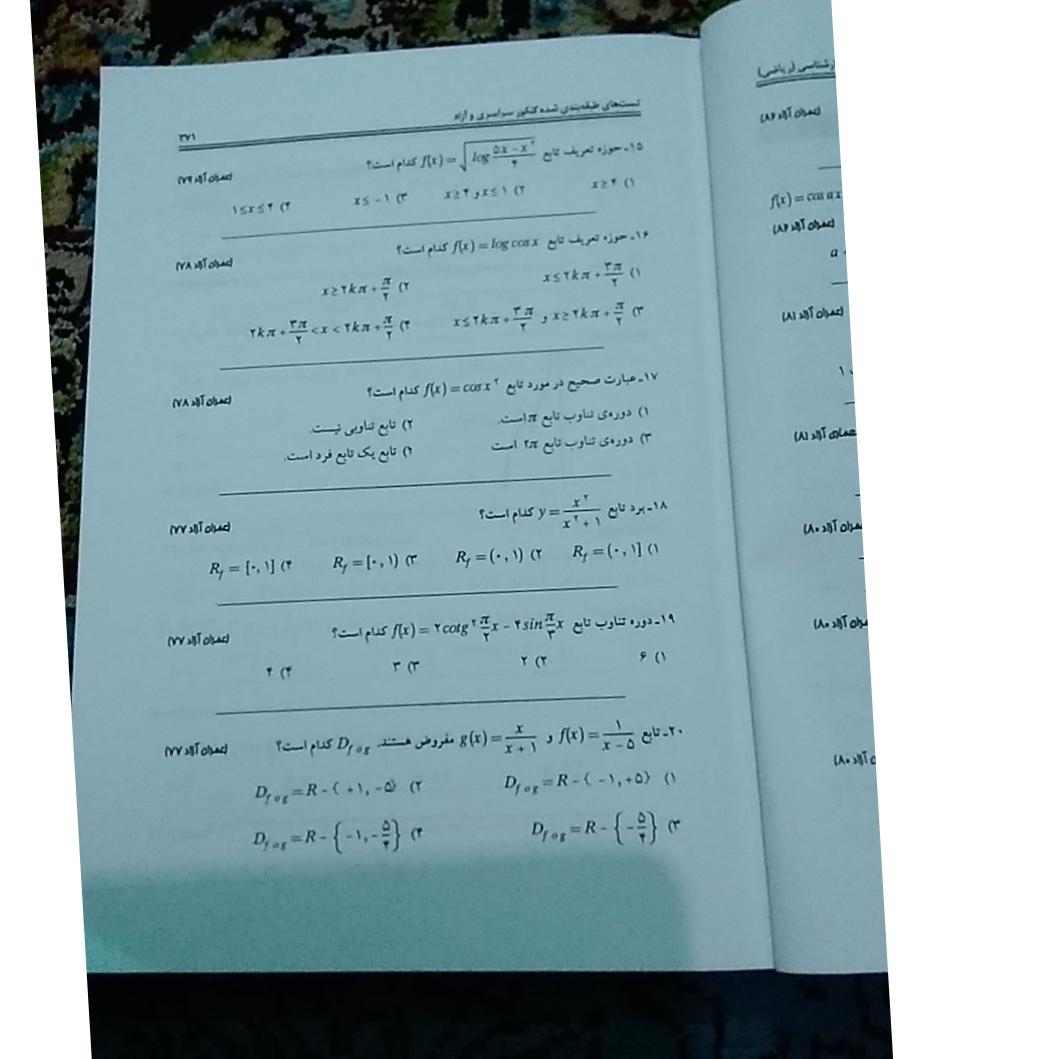 تست‌های طبقه‌بندی شده کنکور سراسری و آزاد ۳۷۱
۱۵ـ حوزه تعریف تابع f(x) = √(log (۵x − x²)/۴) کدام است؟ (عمران آزاد ۷۹)
۱) x ≥ ۴ ۲) x ≤ ۱ و x ≥ ۴ ۳) x ≤ −۱ ۴) ۱ ≤ x ≤ ۴
۱۶ـ حوزه تعریف تابع f(x) = log cos x کدام است؟ (عمران آزاد ۷۸)
۱) x ≤ ۲kπ + ۳π/۲ ۲) x ≥ ۲kπ + π/۲
۳) x ≥ ۲kπ + π/۲ و x ≤ ۲kπ + ۳π/۲ ۴) ۲kπ + ۳π/۲ < x < ۲kπ + π/۲
۱۷ـ عبارت صحیح در مورد تابع f(x) = cos x² کدام است؟ (عمران آزاد ۷۸)
۱) دوره‌ی تناوب تابع π است. ۲) تابع تناوبی نیست.
۳) دوره‌ی تناوب تابع ۲π است ۴) تابع یک تابع فرد است.
۱۸ـ برد تابع y = x²/(x² + ۱) کدام است؟ (عمران آزاد ۷۷)
۱) R_f = (۰, ۱] ۲) R_f = (۰, ۱) ۳) R_f = [۰, ۱) ۴) R_f = [۰, ۱]
۱۹ـ دوره تناوب تابع f(x) = ۲cotg² π/۲ x − ۴sin π/۳ x کدام است؟ (عمران آزاد ۷۷)
۱) ۶ ۲) ۲ ۳) ۳ ۴) ۴
۲۰ـ تابع f(x) = ۱/(x − ۵) و g(x) = x/(x + ۱) مفروض هستند. D_fog کدام است؟ (عمران آزاد ۷۷)
۱) D_fog = R − {−۱, +۵} ۲) D_fog = R − {+۱, −۵}
۳) D_fog = R − {−۵/۴} ۴) D_fog = R − {−۱, −۵/۴}
(ریاضی)
(عمران آزاد ۸۶)
f(x) = cos ax
(عمران آزاد ۸۶)
(عمران آزاد ۸۱)
آزاد ۸۱)
آزاد ۸۰)
آزاد ۸۰)
آزاد ۸۰)